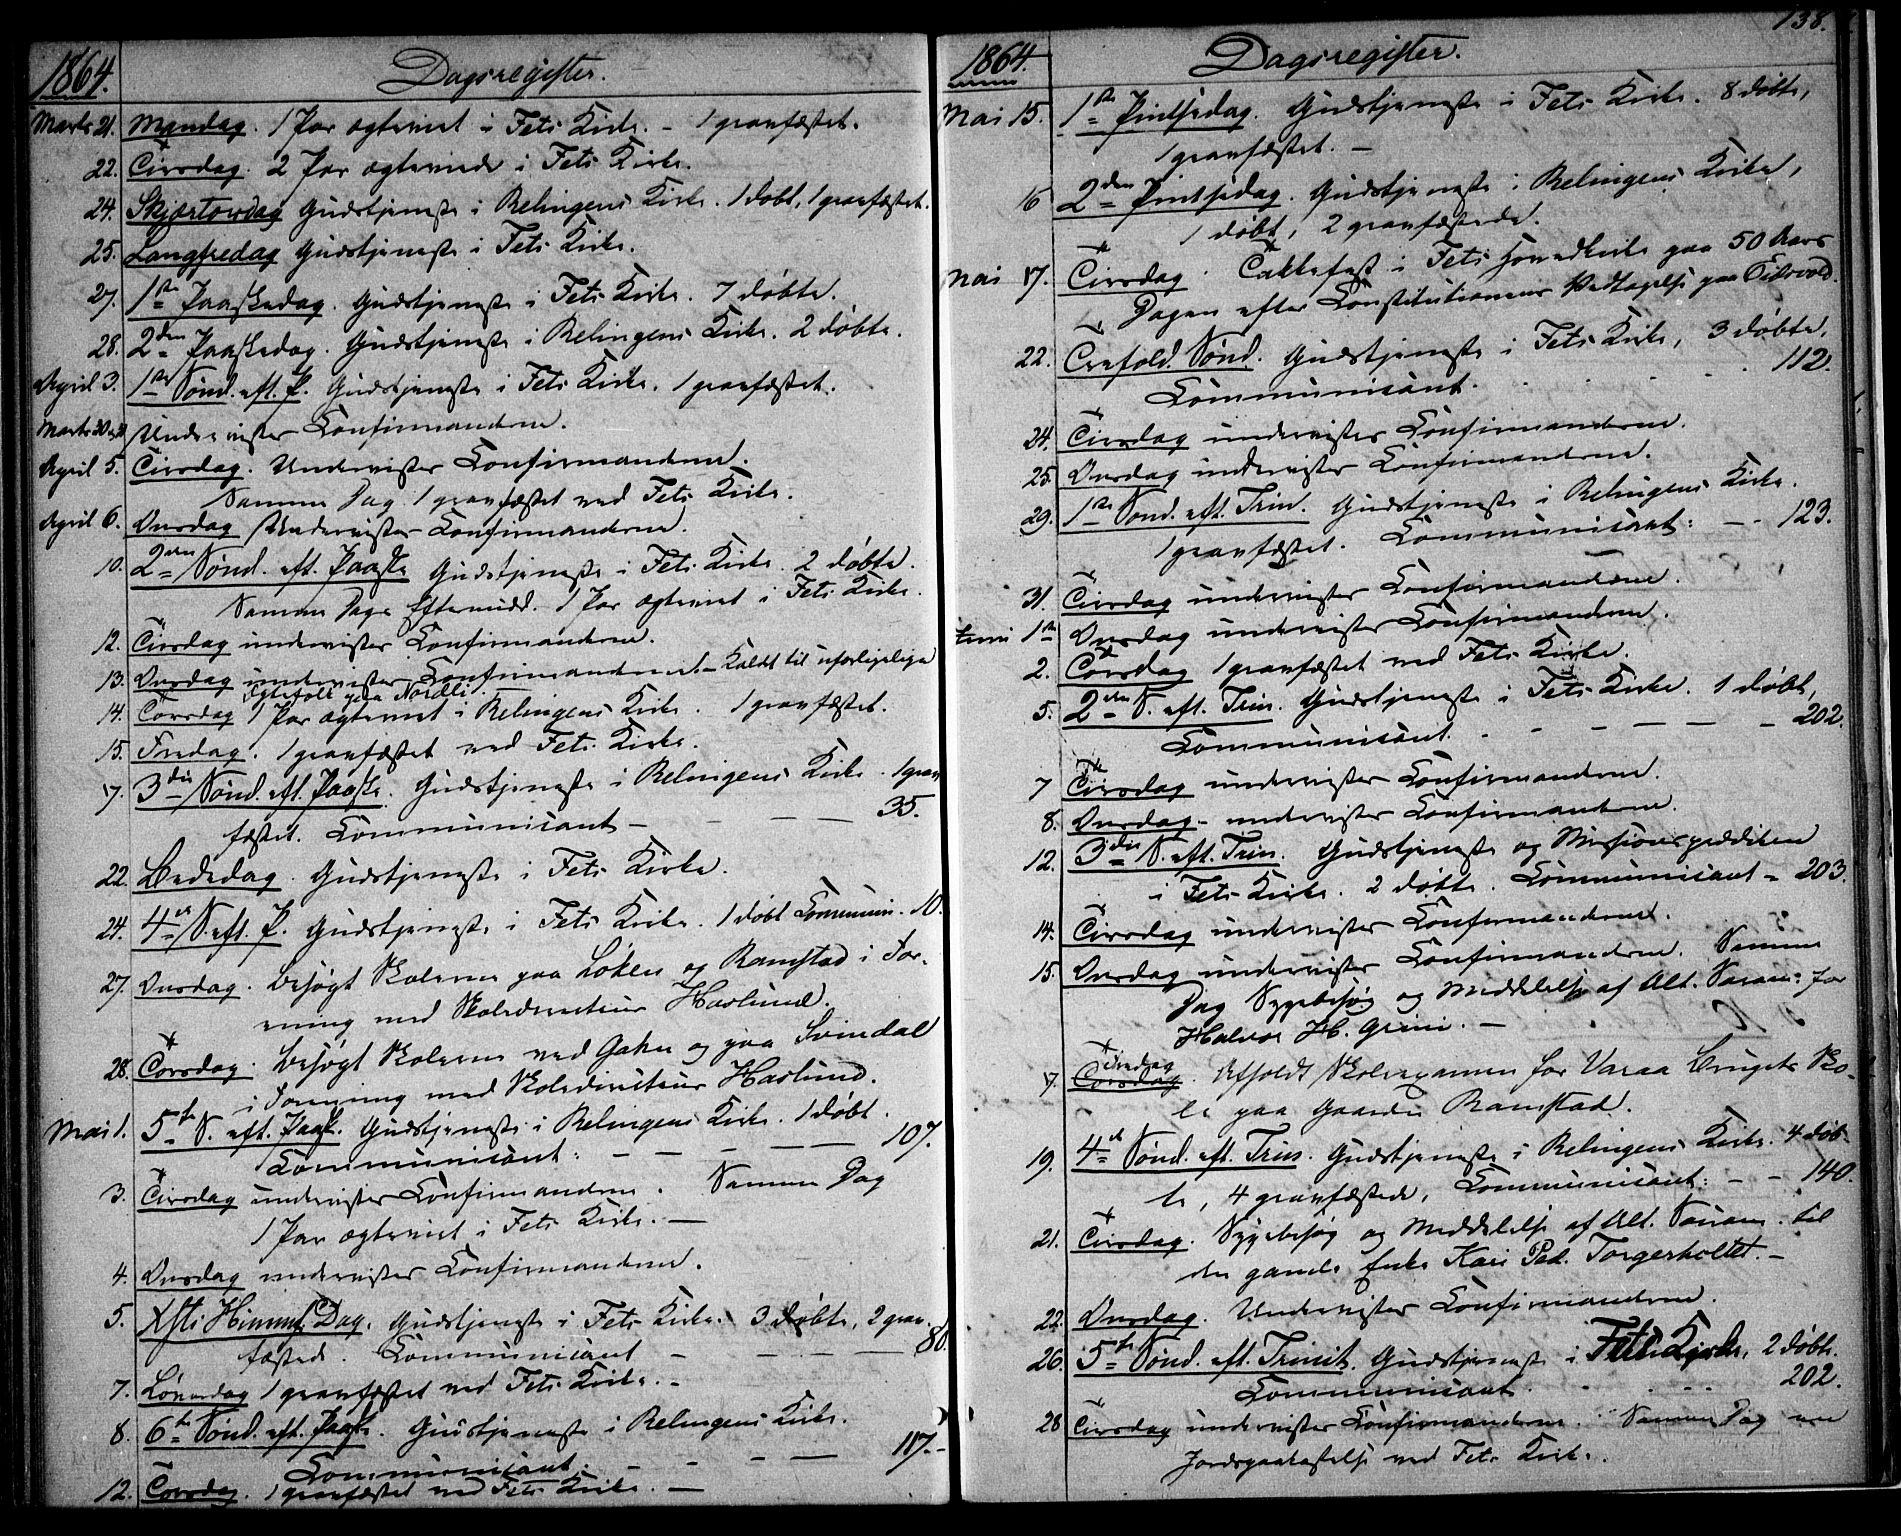 1864.
Dagsregister.
Marts 21. Mandag. 1 Par ægteviet i Fets Kirke. – 1 gravfæstet.
22. Tirsdag. 2 Par ægteviede i Fets Kirke.
24. Skjærtorsdag Gudstjeneste i Relingens Kirke. 1 døbt, 1 gravfæstet.
25. Langfredag Gudstjeneste i Fets Kirke.
27. 1ste Paaskedag. Gudstjeneste i Fets Kirke. 7 døbte.
28. 2den Paaskedag. Gudstjeneste i Relingens Kirke. 2 døbte.
April 3. 1ste Sønd. eft. P. Gudstjeneste i Fets Kirke. 1 gravfæstet.
Marts 30 og 31 Undervister Confirmanderne.
April 5. Tirsdag. Undervister Confirmanderne.
Samme Dag 1 gravfæstet ved Fets Kirke.
April 6. Onsdag Undervister Confirmanderne.
10. 2den Sønd. eft. Paaske Gudstjeneste i Fets Kirke. 2 døbte.
Samme Dags Eftermidd. 1 Par ægteviet i Fets Kirke.
12. Tirsdag undervister Confirmanderne.
13. Onsdag undervister Confirmanderne – Kaldt til uforligelige
Ægtefolk paa Nordli.
14. Torsdag 1 Par ægteviet i Relingens Kirke. 1 gravfæstet.
15. Fredag. 1 gravfæstet ved Fets Kirke.
17. 3die Sønd. eft. Paaske. Gudstjeneste i Relingens Kirke 1 grav
fæstet. Communicant – – – – 35.
22. Bededag. Gudstjeneste i Fets Kirke.
24. 4de S. eft. P. Gudstjeneste i Fets Kirke. 1 døbt Commun. 10.
27. Onsdag. Besøgt Skolerne paa Løken og Ramstad i For-
ening med Skoledirecteur Haslund.
28. Torsdag. Besøgt Skolerne ved Gaken og paa Svindal
i Forening med Skoledirecteur Haslund.
Mai 1. 5te S. eft. Paask. Gudstjeneste i Relingens Kirke. 1 døbt.
Communicant: – – – – 107.
3. Tirsdag undervister Confirmanderne. Samme Dag
1 Par ægteviet i Fets Kirke. –
4. Onsdag undervister Confirmanderne.
5. Xsti Himmf. Dag. Gudstjeneste i Fets Kirke. 3 døbte, 2 grav-
fæstede. Communicant – – – – 80.
7. Løverdag 1 gravfæstet ved Fets Kirke. –
8. 6te Sønd. eft. Paask. Gudstjeneste i Relingens Kirke.
Communicant: – – – – 117. –
12. Torsdag. 1 gravfæstet ved Fets Kirke. –
138.
1864.
Dagsregister.
Mai 15. 1ste Pintsedag. Gudstjeneste i Fets Kirke. 8 døbte,
1 gravfæstet. –
16 2den Pintsedag. Gudstjeneste i Relingens Kirke,
1 døbt, 2 gravfæstede.
Mai 17. Tirsdag. Takkefest i Fets Hovedkirke paa 50 Aars
Dagen efter Constitutionens Vedtagelse paa Eidsvold.
22. Trefold. Sønd. Gudstjeneste i Fets Kirke, 3 døbte.
Communicant. 112.
24. Tirsdag undervister Confirmanderne.
25. Onsdag undervister Confirmanderne.
29. 1ste Sønd. eft. Trin. Gudstjeneste i Relingens Kirke.
1 gravfæstet. Communicant: – – 123.
31. Tirsdag undervister Confirmanderne.
Juni 1ste Onsdag undervister Confirmanderne.
2. Torsdag 1 gravfæstet ved Fets Kirke.
5. 2den S. eft. Trin. Gudstjeneste i Fets Kirke. 1 døbt,
Communicant – – – – – 202.
7 Tirsdag undervister Confirmanderne.
8. Onsdag – undervister Confirmanderne.
12. 3die S. eft. Trin. Gudstjeneste og Missionsprædiken
i Fets Kirke. 2 døbte. Communicant – 203.
14. Tirsdag undervister Confirmanderne.
15. Onsdag undervister Confirmanderne. Samme
Dag Sygebesøg og Meddelelse af Alt. Saram: for
Halvor H. Grini. –
Fredag
17. Torsdag. Afholdt Skoleexamen for Varaa Brugets Sko-
le paa Gaarden Ramstad.
19. 4de Sønd. eft. Trin. Gudstjeneste i Relingens Kirke. 4 døb-
te, 4 gravfæstede, Communicant: – – 140.
21. Tirsdag. Sygebesøg og Meddelelse af Alt. Saram. til
den gamle Enke Kari Ped. Torgerholtet. –
22. Onsdag. Undervister Confirmanderne.
26. 5te Sønd. eft. Trinit. Gudstjeneste i Fets Kirke, 2 døbte.
Communicant. 202.
28 Tirsdag undervister Confirmanderne. Samme Dag en
Jordspaakastelse ved Fets Kirke.